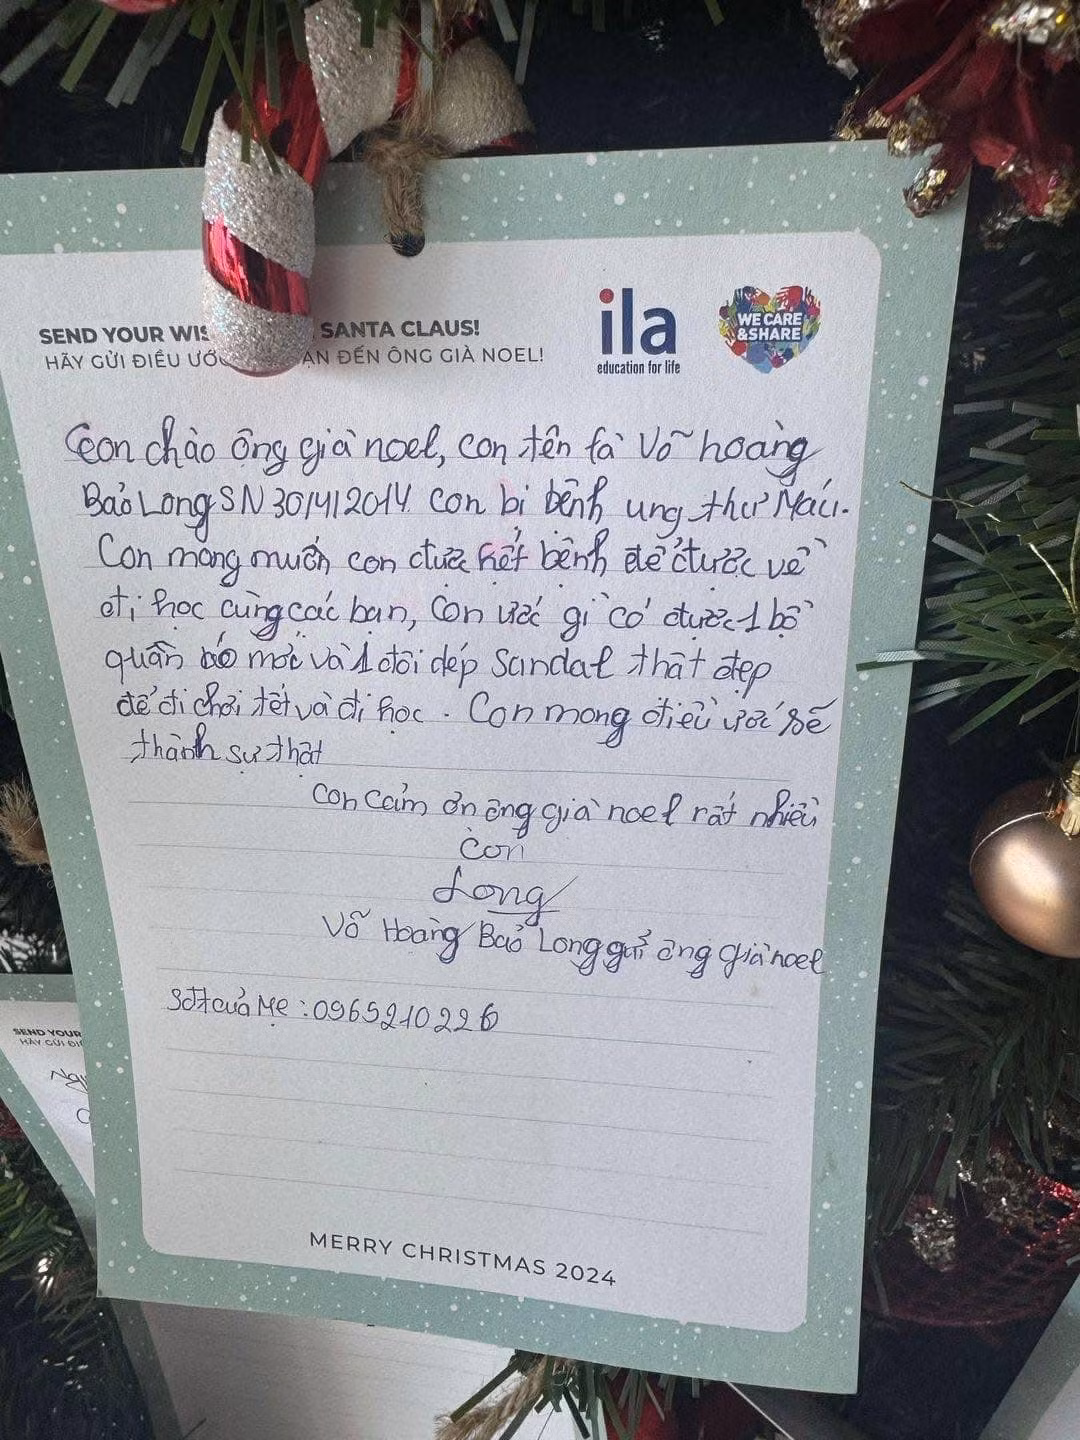 SEND YOUR WIS SANTA CLAUS!
HÃY GỬI ĐIỀU ƯỚ ẠN ĐẾN ÔNG GIÀ NOEL!
ila
education for life
WE CARE
&SHARE
Con chào ông già noel, con tên là Võ hoàng
Bảo Long SN 30/4/2014 con bị bệnh ung thư Máu.
Con mong muốn con được hết bệnh để được về
đi học cùng các bạn, con ước gì có được 1 bộ
quần áo mới và 1 đôi dép Sandal thật đẹp
để đi chơi tết và đi học. Con mong điều ước sẽ
thành sự thật
Con cảm ơn ông già noel rất nhiều
Con
Long
Võ Hoàng Bảo Long gửi ông già noel
Sđt của Mẹ : 0965210226
MERRY CHRISTMAS 2024
SEND YOUR
HÃY GỬI ĐI